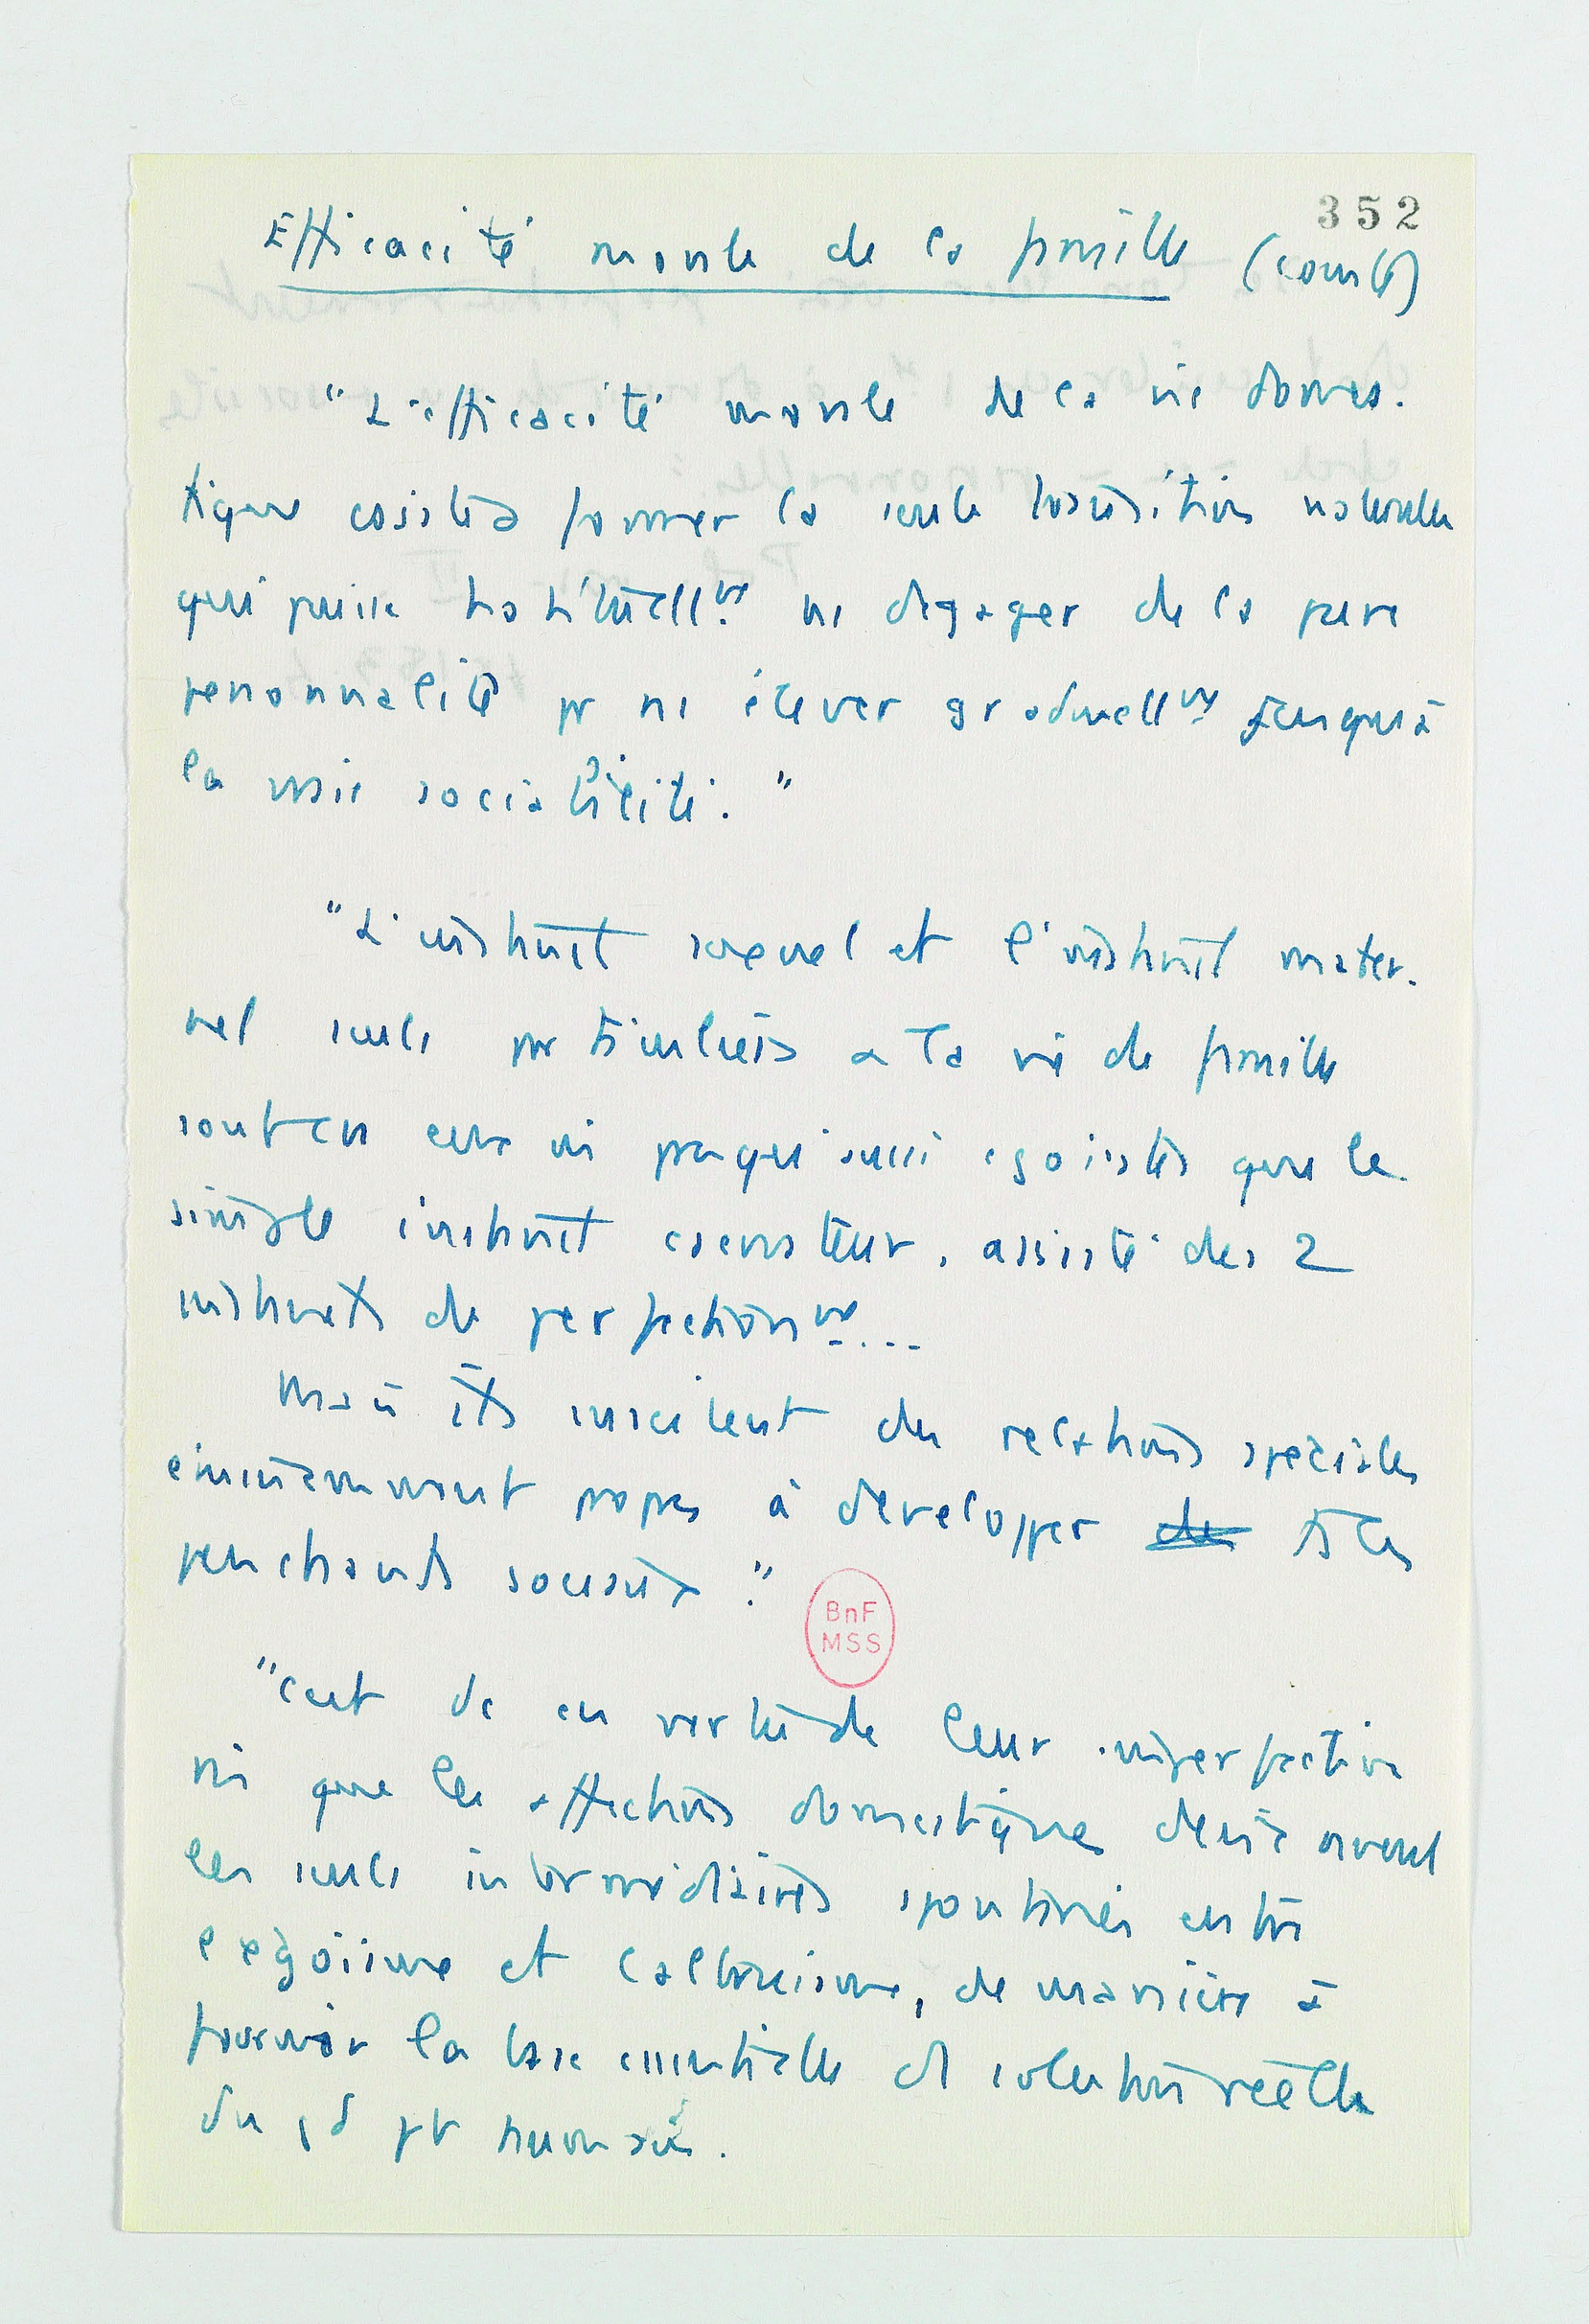 352
Efficacité morale de la famille (Comte)
"L'efficacité morale de la vie domes-
tique consiste à former la seule transition naturelle
qui puisse habituellt se dégager de la pure
personnalité pr se élever graduellt jusqu'à
la vraie sociabilité."
"L'instinct sexuel et l'instinct mater-
nel seuls particuliers à la vie de famille
sont en eux mm presqu'aussi égoistes que le
simple instinct conservateur, assisté des 2
instincts de perfectionnt...
Mais ils suscitent des relations spéciales
éminemment propres à développer de ts les
penchants sociaux."
"C'est dc en vertu de leur imperfection
mm que les affections domestiques deviennent
les seuls intermédiaires spontanés entre
l'égoisme et l'altruisme, de manière à
fournir la base essentielle d solution réelle
du gd pb humain.
BnF
MSS